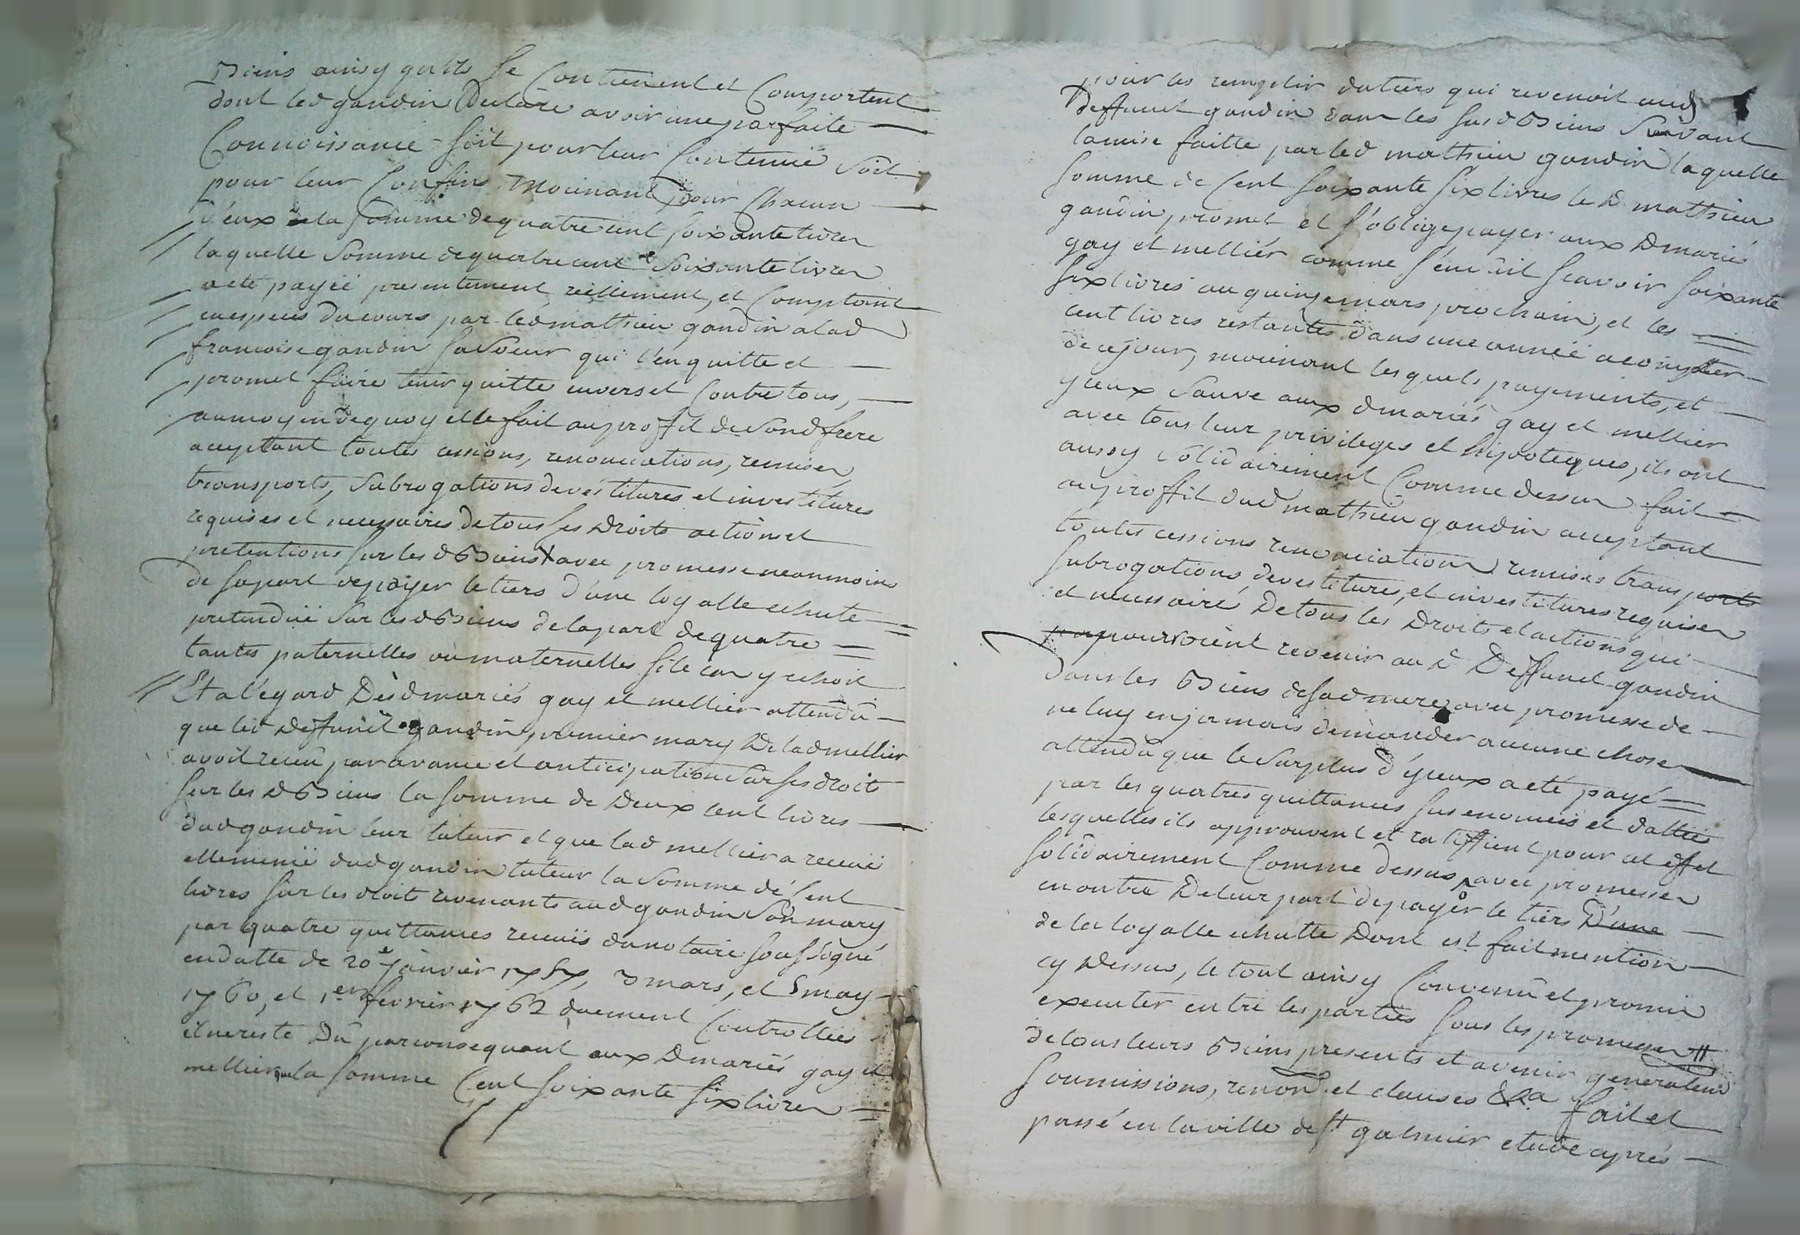 Biens ainsy qu'ils se Contienent et Comportent
dont led gaudin Declare avoir une parfaite
Connoissance soit pour leur Contenuë soit
pour leur Confins, moienant pour Chacun
d'eux la somme de quatre cent soixante livres
laquelle somme de quatre cent soixante livres
a eté payéé presentement, réèllement, et Comptant
en especes du cours par led mathieu gaudin a lad
francoise gaudin sa soeur qui l'en quitte et
promet faire tenir quitte envers et Contre tous,
au moyen de quoy elle fait au proffit de sond frere
acceptant toutes cessions, renonciations, remises
transports, subrogations devestitures et investitures
requises et necessaires de tous ses Droits actions et
pretentions sur les d Biens avec promesse neanmoins
de sa part de payer le tiers d'une loyalle echute
pretenduë sur les d Biens de la part de quatre
tantes paternelles ou maternelles si le cas y echoit
Et a l'egard Desd mariés gay et mellier attendû
que led Deffunct gaudin premier mary De lad mellier
avoit receu par avance et anticipation sur ses droits
sur les d Biens la somme de Deux cent livres
dud gaudin leur tuteur et que lad mellier a receuë
ellememe dud gaudin tuteur la somme de Cent
livres sur les droits revenants aud gaudin son mary
par quatre quittances receuës du notaire soussigné
en datte de 20e janvier 1757, 3 mars, et 5 may
1760, et 1er fevrier 1762 duement Controllées
il ne reste Dû par consequant aux D mariés gay et
mellier que la somme Cent soixante six livres
pour les remplir du tiers qui revenoit aud
Deffunct gaudin dans les susd Biens suivant
la mise faitte par led mathieu gaudin laquelle
somme de Cent soixante six livres le D mathieu
gaudin promet et s'oblige payer aux D mariés
gay et mellier comme s'ensuit scavoir soixante
six livres au quinze mars prochain, et les
cent livres restantes dans une année a compter
de ce jour, moienant lesquels payements, et
yceux sauve aux d mariés gay et mellier
avec tous leur privileges et hipoteques, ils ont
aussy solidairement Comme dessus fait
au proffit dud mathieu gaudin acceptant
toutes cessions renonciations remises transports
subrogations, devestitures, et investitures requises
et necessaires De tous les Droits et actions qui
pourroient revenir au D Deffunct gaudin
Dans les Biens de sad mere avec promesse de
ne luy en jamais demander aucune chose
attendu que le surplus d'yceux a eté payé
par les quatres quittances susenomeés et dattées
lesquelles ils approuvent et ratiffient pour cet effet
solidairement Comme dessus avec promesses
en outre De leur part de payer le tiers D'une
de la loyalle echutte Dont est fait mention
cy Dessus, le tout ainsy Convenû et promis
executer entre les parties sous les promesses
de tous leurs Biens presents et avenir generaleus
soumissions, renon.d et clauses &a fait et
passé en la ville de st galmier etude après